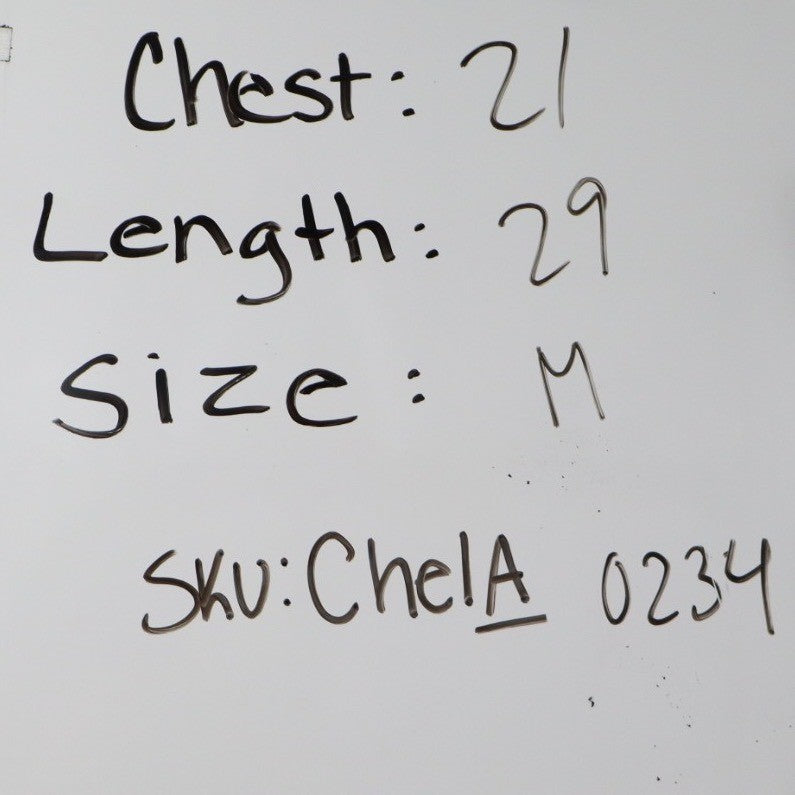 Chest: 21
Length: 29
Size: M
SKU: ChelA 0234